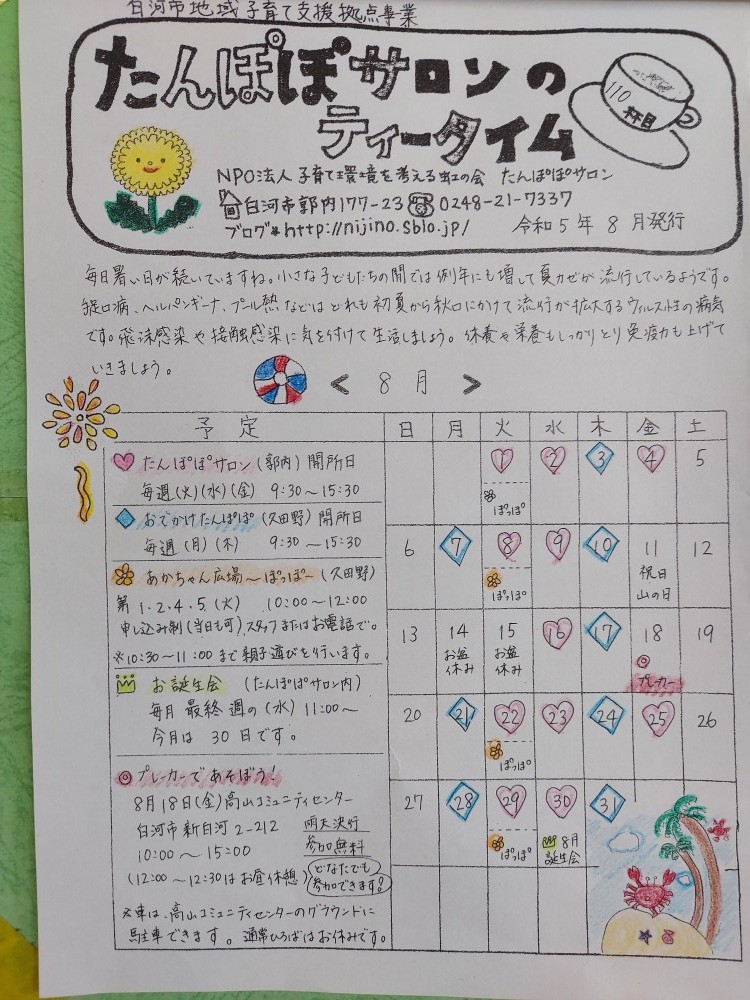 白河市地域子育て支援拠点事業
たんぽぽサロンの
ティータイム
110
杯目
NPO法人 子育て環境を考える虹の会 たんぽぽサロン
白河市郭内177-23 ☎0248-21-7337
ブログ*http://nijino.sblo.jp/ 令和5年8月発行
毎日暑い日が続いていますね。小さな子どもたちの間では例年にも増して夏カゼが流行しているようです。
手足口病、ヘルパンギーナ、プール熱などはどれも初夏から秋口にかけて流行が拡大するウィルス性の病気
です。飛沫感染や接触感染に気を付けて生活しましょう。休養や栄養もしっかりとり免疫力も上げて
いきましょう。
< 8月 >
予定 日 月 火 水 木 金 土
たんぽぽサロン(郭内)開所日
毎週(火)(水)(金) 9:30~15:30
おでかけたんぽぽ(久田野)開所日
毎週(月)(木) 9:30~15:30
あかちゃん広場~ぽっぽ~(久田野)
第1.2.4.5.(火) 10:00~12:00
申し込み制(当日も可)スタッフまたはお電話で。
※10:30~11:00まで親子遊びを行います。
お誕生会 (たんぽぽサロン内)
毎月最終週の(水)11:00~
今月は30日です。
プレーカーであそぼう!
8月18日(金)高山コミュニティセンター
白河市新白河2-212 雨天決行
10:00~15:00 参加無料
(12:00~12:30はお昼休憩) どなたでも
参加できます!
※車は、高山コミュニティセンターのグラウンドに
駐車できます。通常ひろばはお休みです。
1 2 3 4 5
ぽっぽ
6 7 8 9 10 11 12
ぽっぽ 祝日
山の日
13 14 15 16 17 18 19
お盆 お盆
休み 休み プレーカー
20 21 22 23 24 25 26
ぽっぽ
27 28 29 30 31
ぽっぽ 8月
誕生会